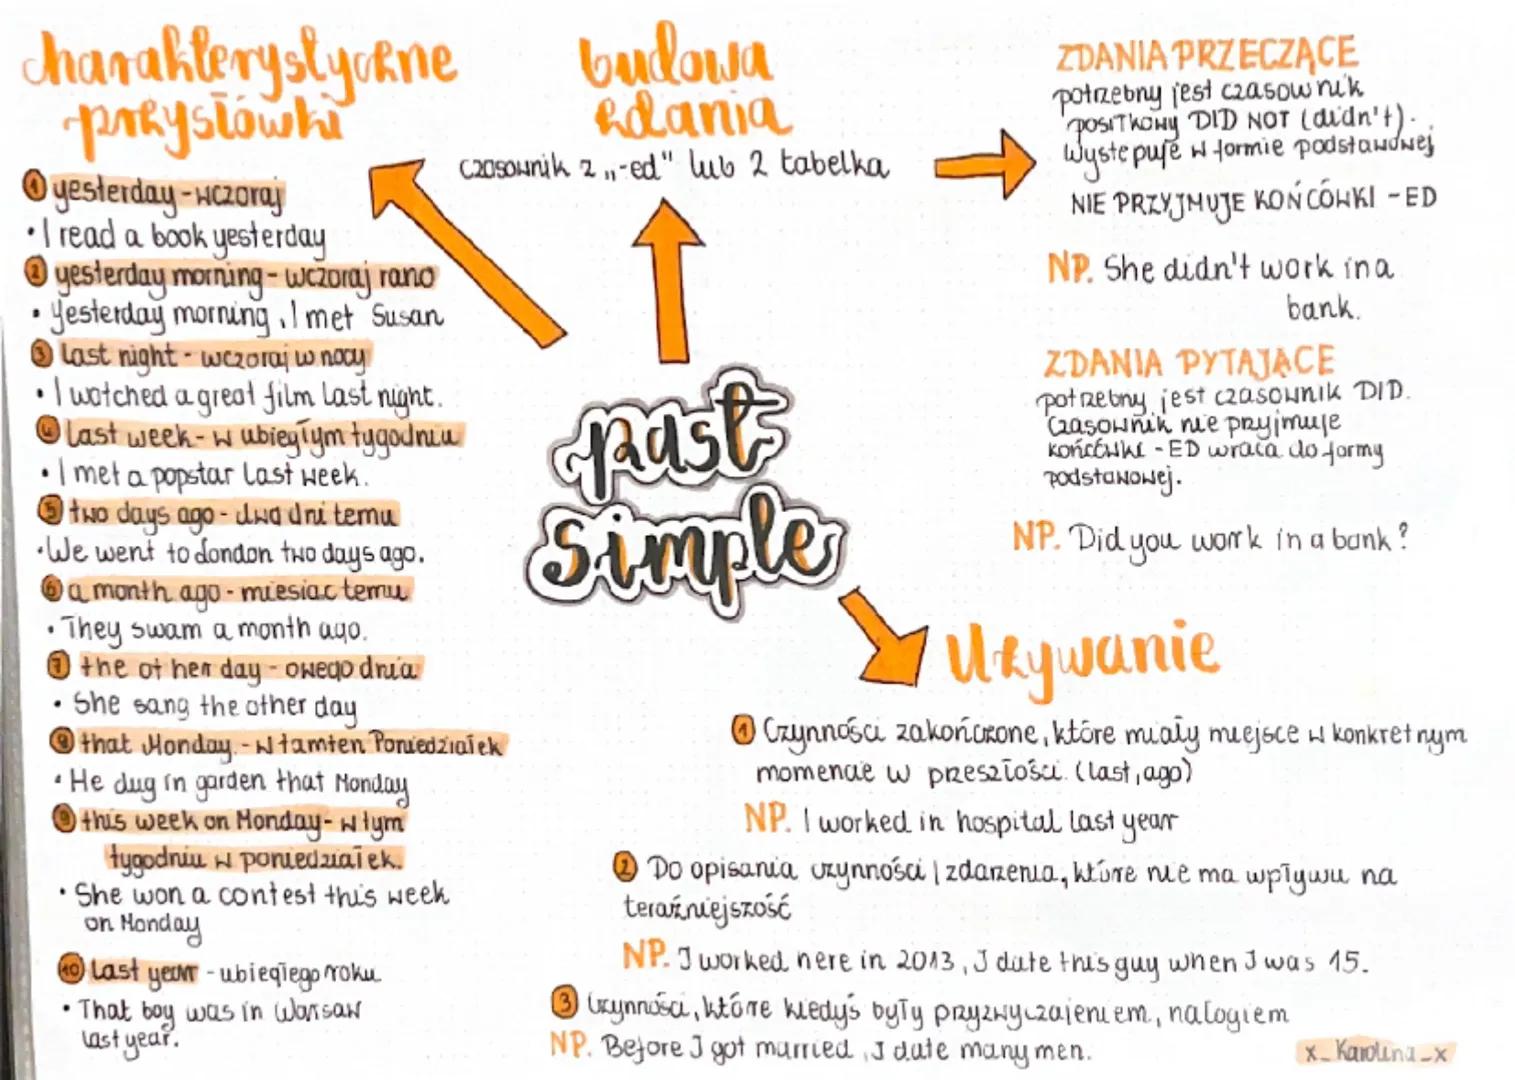 charakterystyczne
przysłówki
① yesterday - wczoraj
• I read a book yesterday
② yesterday morning - wczoraj rano
• Yesterday morning, I met Susan
③ Last night - wczoraj w nocy
• I watched a great film last night.
④ Last week - w ubiegłym tygodniu
• I met a popstar last week.
⑤ two days ago - dwa dni temu
• We went to London two days ago.
⑥ a month ago - miesiąc temu
• They swam a month ago.
⑦ the other day - owego dnia
• She sang the other day
⑨ that Monday - w tamten Poniedziałek
• He dug in garden that Monday
⑨ this week on Monday - w tym
tygodniu w poniedziałek.
• She won a contest this week
on Monday
⑩ Last year - ubiegłego roku
• That boy was in Warsaw
last year.
budowa
zdania
czasownik z „-ed" lub 2 tabelka
past
simple
ZDANIA PRZECZĄCE
potrzebny jest czasownik
posiTkowy DID NOT (didn't).
Występuje w formie podstawowej
NIE PRZYJMUJE KOŃCÓWKI -ED
NP. She didn't work in a
bank.
ZDANIA PYTAJĄCE
potrzebny jest czasownik DID.
Czasownik nie przyjmuje
końcówki -ED wraca do formy
podstawowej.
NP. Did you work in a bank?
Używanie
① Czynności zakończone, które miały miejsce w konkretnym
momencie w przeszłości. (last, ago)
NP. I worked in hospital last year
② Do opisania czynności / zdarzenia, które nie ma wpływu na
teraźniejszość
NP. I worked here in 2013, I date this guy when I was 15.
③ Czynności, które kiedyś były przyzwyczajeniem, nałogiem
NP. Before I got married, I date many men.
x_Karolina_x